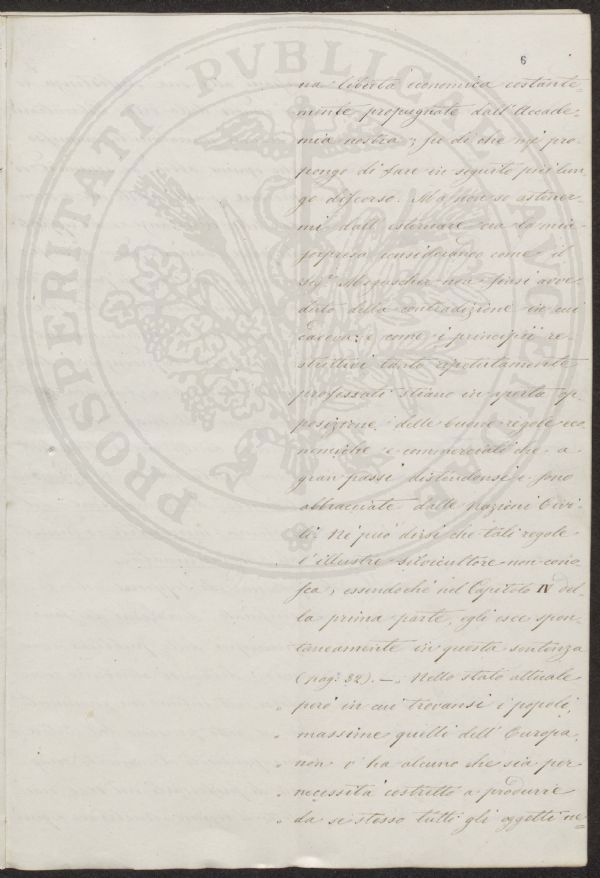 6
na libertà economica costante-
mente propugnate dall'Accade-
mia nostra; su di che mi pro-
pongo di fare in seguito più lun-
go discorso. Ma non so astener-
mi dall'esternare ora la mia
sorpresa considerando come il
Sigr. Meguscher non siasi avve-
duto della contradizione in cui
cadeva; e come i principii re-
strittivi tanto ripetutamente
professati stiano in aperta op-
posizione, delle buone regole eco-
nomiche e commerciali che a
gran passi distendonsi e sono
abbracciate dalle nazioni Civi-
li. Nè può dirsi che tali regole
l'illustre silvicultore non cono-
sca, essendochè nel Capitolo IV del-
la prima parte, egli esce spon-
taneamente in questa sentenza
(pag: 32). —, Nello stato attuale
„ però in cui trovansi i popoli,
„ massime quelli dell'Europa,
„ non v'ha alcuno che sia per
„ necessità costretto a produrre
„ da se stesso tutti gli oggetti ne=
PROSPERITATI PVBLICAE AVGENDAE